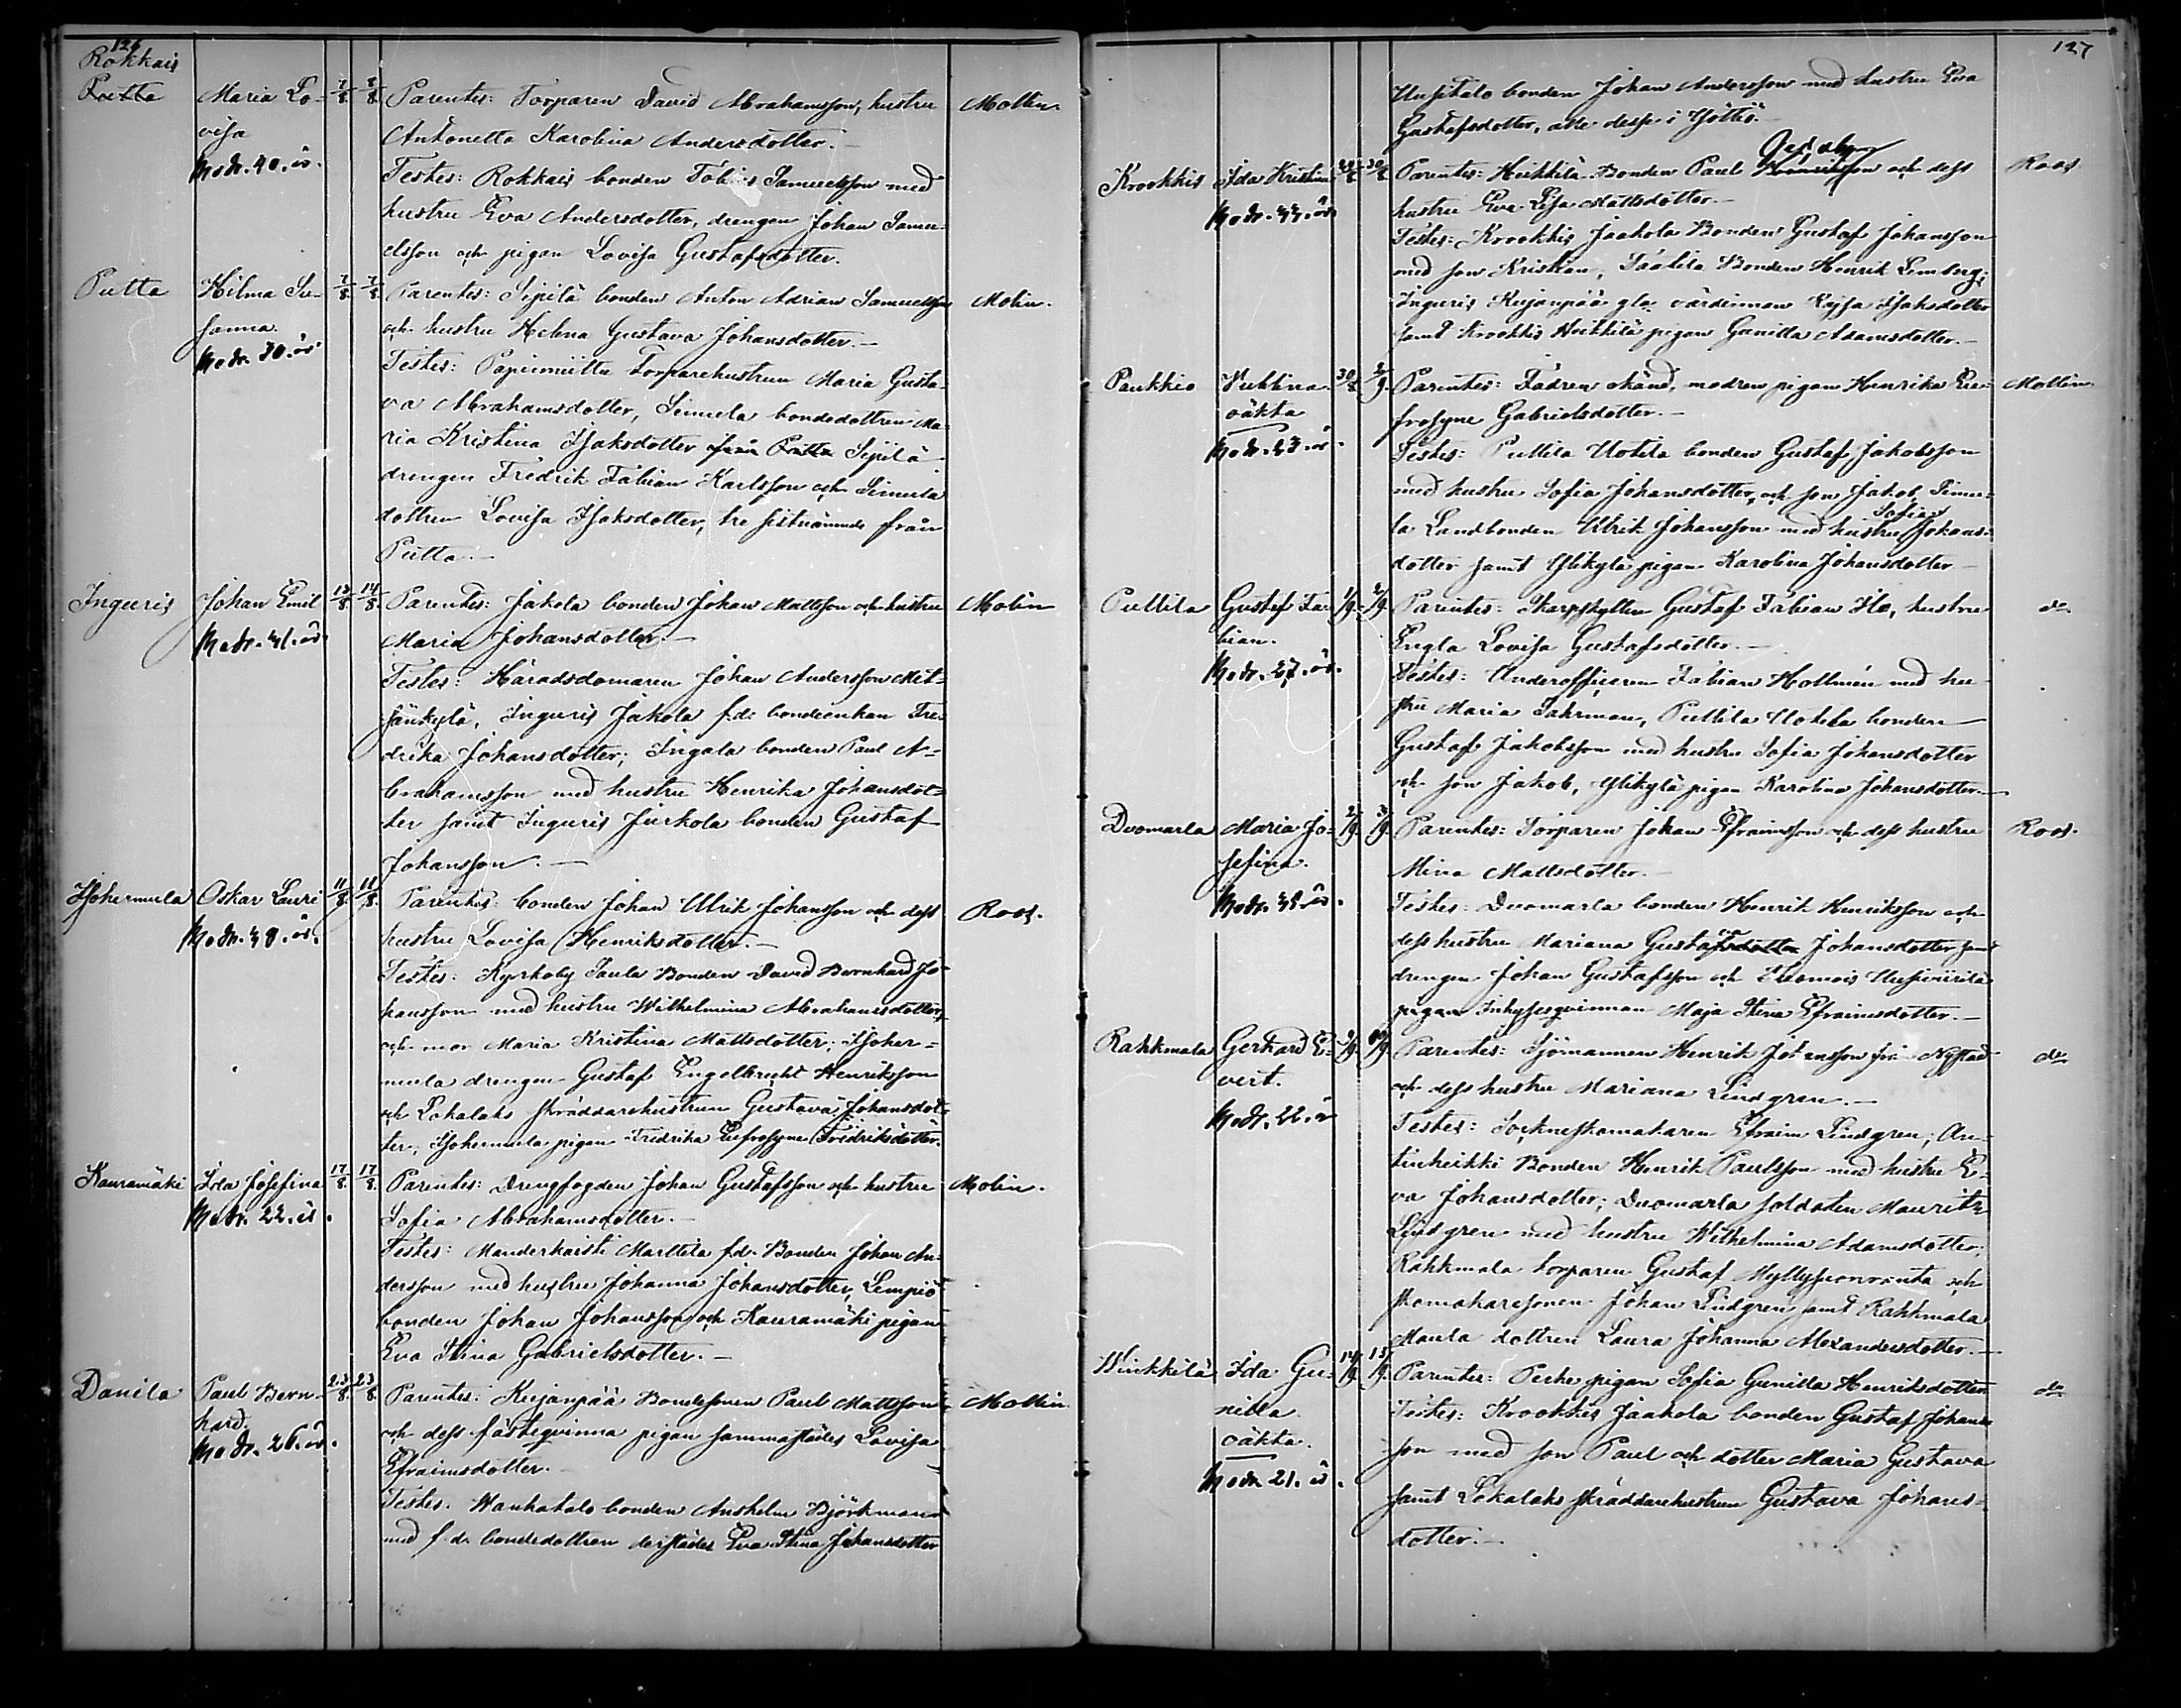 126
Rokkais
Putta Maria Lo- 7/8 8/8 Parentes: Torparen David Abrahamsson, hustru Molin.
visa Antonetta Karolina Andersdotter.-
Modr. 40. år. Testes: Rokkais bonden Tobias Samuelsson med
hustru Eva Andersdotter, drengen Johan Samu-
elsson och pigan Lovisa Gustafsdotter.
Putta Hilma Su- 7/8 7/8 Parentes: Sipilä bonden Anton Adrian Samuelsson Molin.
sanna. och hustru Helena Gustava Johansdotter.-
Modr. 30. år Testes: Papinniittu Torparehustrun Maria Gusta-
va Abrahamsdotter, Simula bondedottren Ma-
ria Kristina Isaksdotter från Putta Sipilä
drengen Fredrik Fabian Karlsson och Simula
dottren Lovisa Isaksdotter, tre sistnämnde från
Putta.-
Inguris Johan Emil 13/8 14/8 Parentes: Jakola bonden Johan Mattsson och hustru Molin
Modr. 41. år. Maria Johansdotter.-
Testes: Häradsdomaren Johan Andersson Met-
sänkylä, Inguris Jakola f.d. bondeenkan Fre-
drika Johansdotter; Ingala bonden Paul A-
brahamsson med hustru Henrika Johansdot-
ter samt Inguris Jurkola bonden Gustaf
Johansson.-
Isohermula Oskar Lauri 11/8 11/8 Parentes: bonden Johan Ulrik Johansson och dess Roos.
Modr. 48. år. hustru Lovisa Henriksdotter.-
Testes: Kyrkoby Paula Bonden David Bernhard Jo-
hansson med hustru Wilhelmina Abrahamsdotter,
och mor Maria Kristina Mattsdotter; Isoher-
mula drengen Gustaf Engelbrecht Henriksson
och Lokalaks skräddarehustrun Gustava Johansdot-
ter, Isohermula pigan Fredrika Eufrosyne Fredriksdotter.
Kauramäki Ida Josefina 17/8 17/8 Parentes: Drengfogden Johan Gustafsson och hustru Molin.
Modr. 22. år. Sofia Abrahamsdotter.-
Testes: Manderkaisti Marttila f.d. Bonden Johan An-
dersson med hustru Johanna Johansdotter, Lempiö
bonden Johan Johansson och Kauramäki pigan
Eva Stina Gabrielsdotter.-
Danila Paul Bern- 23/8 23/8 Parentes: Kujanpää Bondesonen Paul Mattsson Molin
hard. och dess fästeqvinna pigan sammastädes Lovisa
Modr. 26. år. Efraimsdotter.-
Testes. Wanhatalo bonden Anshelm Björkman
med f.d. bondedottren derstädes Eva Stina Johansdotter
127
Uusitalo bonden Johan Andersson med hustru Eva
Gustafsdotter, alle desse i
Krookkis Ida Kristina 29/8 30/8 Parentes: Heikkilä Bonden Paul och dess Roos
Modr. 44. år hustru Eva Lisa Mattsdotter.-
Testes: Krookkis Jaakola Bonden Gustaf Johansson
med son Kristian, Bonden Henrik
Inguris Kujanpää gla värdinnan Isaksdotter
samt Krookkis Heikkilä pigan Gunilla Adamsdotter.-
Paukkio Vilhlmina 30/8 2/9 Parentes: Fadren okänd, modren pigan Henrika Eu- Molin.
oäkta frosyne Gabrielsdotter.-
Modr. 43. år. Testes: Puttila Uotila bonden Gustaf Jakobsson
med hustru Sofia Johansdotter, och son Jakob, Simu-
la Landbonden Ulrik Johansson med hustru Sofia Johans-
dotter samt Ylikylä pigan Karolina Johansdotter
Puttila Gustaf Fa- 1/9 2/9 Parentes: Skarpskytten Gustaf Fabian Ilo, hustru do
bian. Engla Lovisa Gustafsdotter.-
Modr. 27. år. Testes: Underofficeren Fabian Hollmén med hu-
stru Maria Sahrman, Puttila Uotila bonden
Gustaf Jakobsson med hustru Sofia Johansdotter
och son Jakob, Ylikylä pigan Karolina Johansdotter.-
Duomarla Maria Jo- 2/9 3/9 Parentes: Torparen Johan Efraimsson och dess hustru Roos.
sefina. Mina Mattsdotter.-
Modr. 38. år. Testes: Duomarla bonden Henrik Henriksson och
dess hustru Mariana Gustafsdotter Johansdotter samt
drengen Johan Gustafsson och
pigan Inhysesqvinnan Maja Stina Efraimsdotter.-
Rahkmala Gerhard E- Parentes: Sjömannen Henrik Johansson från Nystad do
vert. och dess hustru Mariana Lindgren.-
Modr. 22. år Testes: Sockneskomakaren Efraim Lindgren; An-
tinheikki Bonden Henrik Paulsson med hustru E-
va Johansdotter; Duomarla soldaten Mauritz
Lindgren med hustru Wilhelmina Adamsdotter,
Rahkmala torparen Gustaf och
skomakaresonen Johan Lindgren samt Rahkmala
Maula dottren Laura Johanna Alexandersdotter.-
Winkkilä Ida Gu- 14/9 15/9 Parentes: Perho pigan Sofia Gunilla Henriksdotter do
nilla Testes: Krookkis Jaakola bonden Gustaf Johans
oäkta. son med son Paul och dotter Maria Gustava
Modr. 21. år. samt Lokalaks skräddarehustrun Gustava Johans-
dotter.-